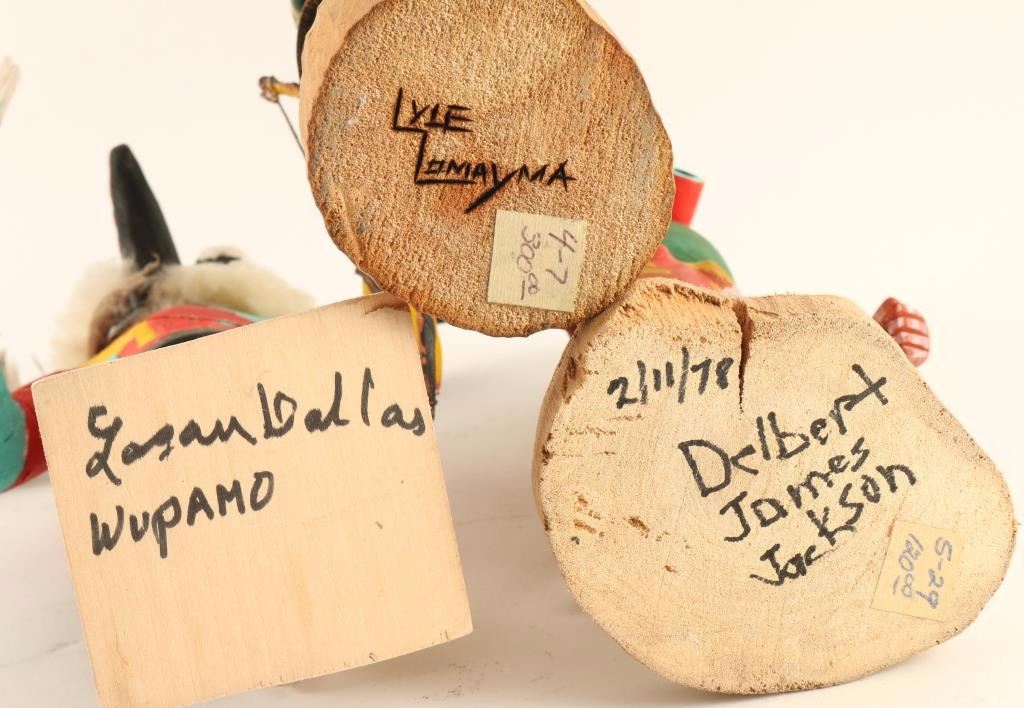 LYLE
LOMAYMA
4-7
300 00
Logan Dallas
WUPAMO
2/11/78
Delbert
James
Jackson
5-29
120 00